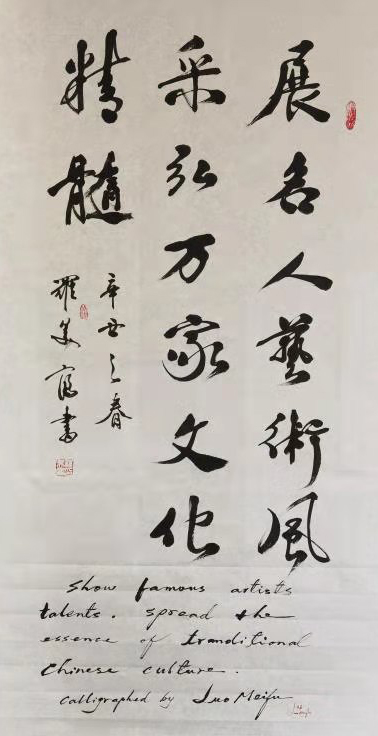 展名人藝術風
采弘万家文化
精髓
辛丑之春
羅美富書
show famous artists
talents. spread the
essence of tranditional
Chinese culture.
Calligraphed by Luo Meifu